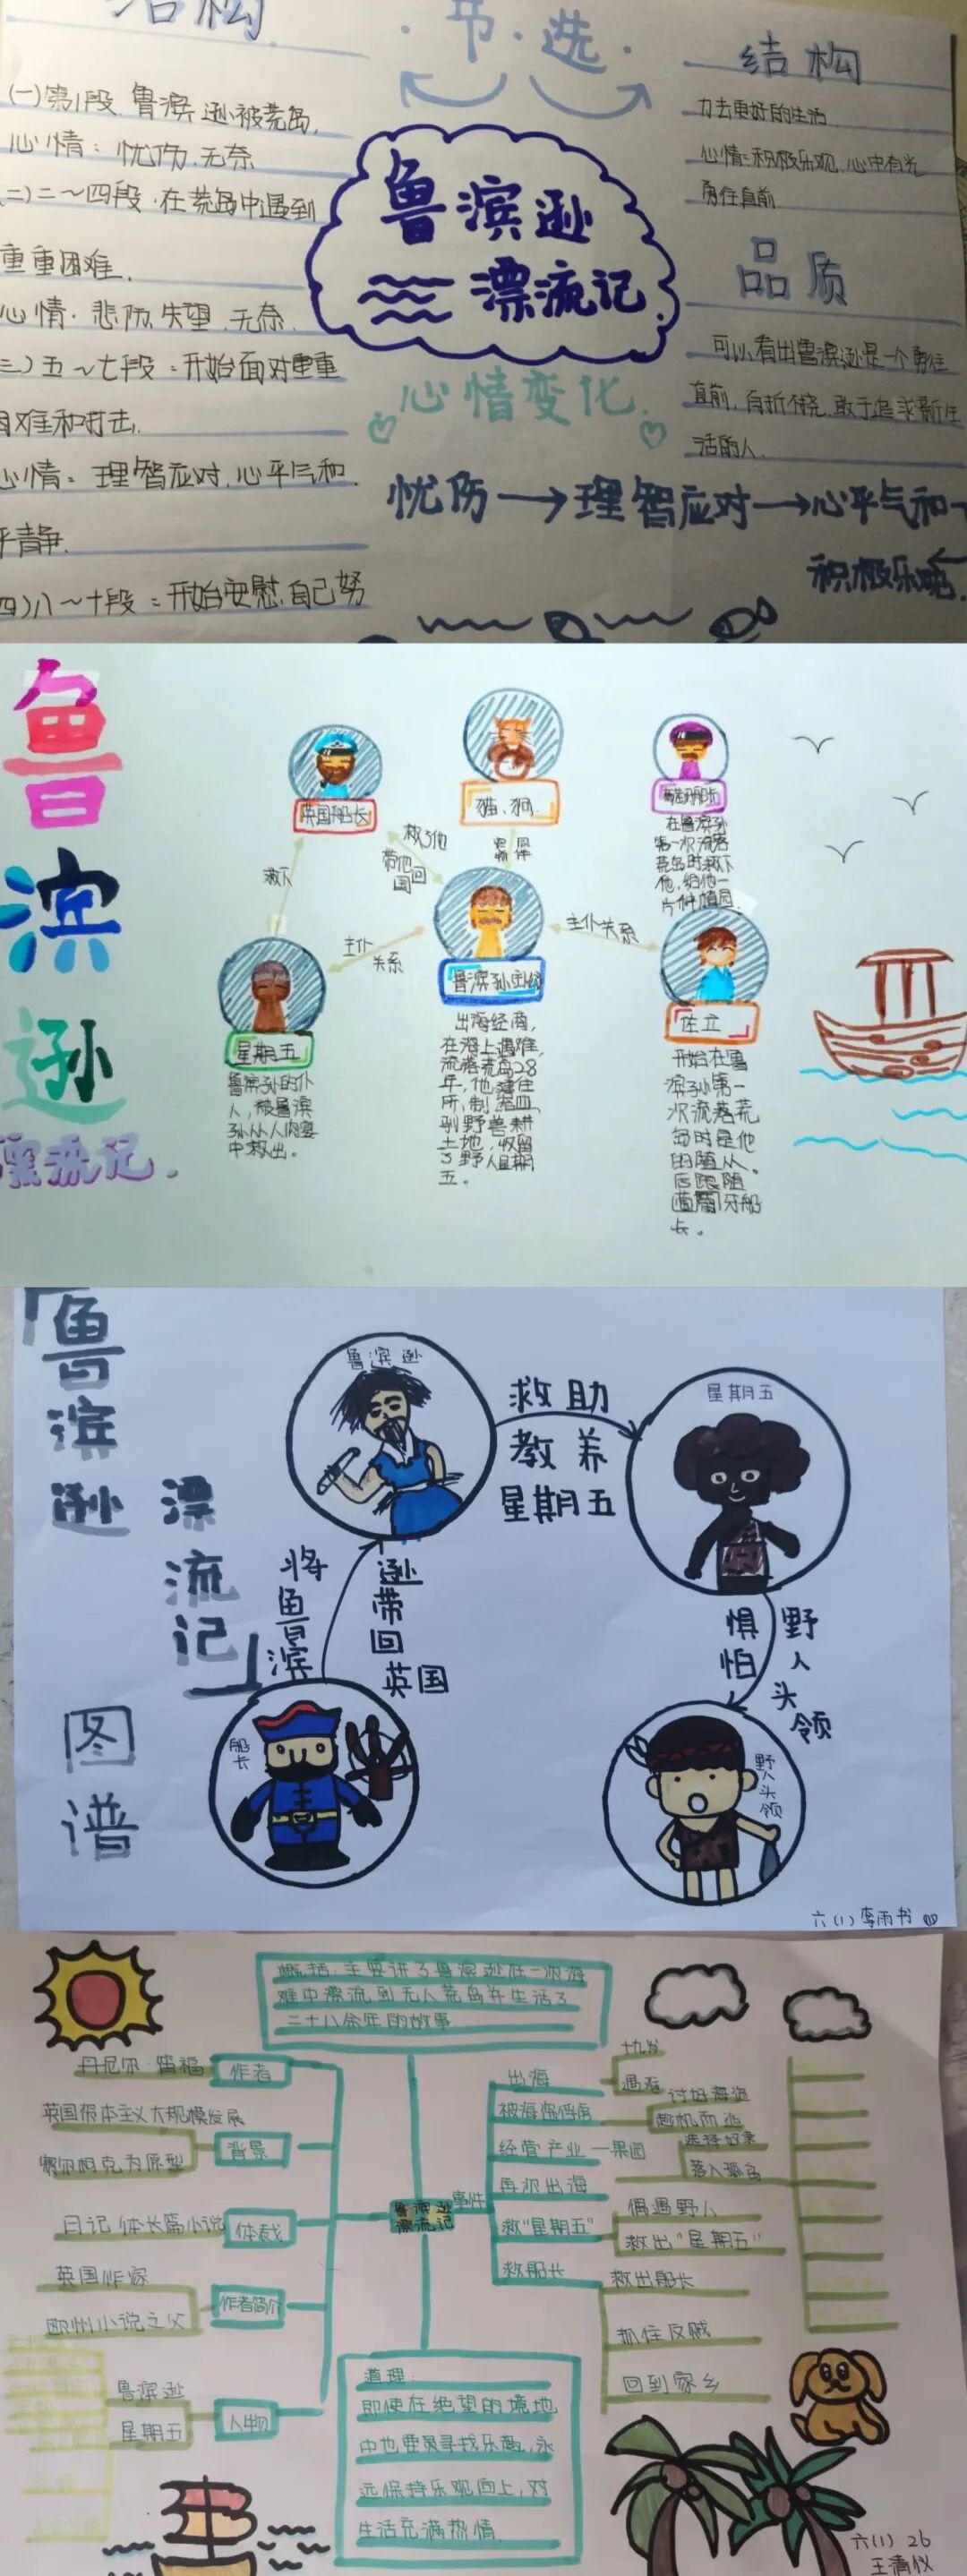 结构
(一)第1段.鲁滨逊被荒岛,
心情:忧伤,无奈
二)二~四段.在荒岛中遇到
重重困难.
心情.悲伤,失望.无奈.
三)五~七段:开始面对重重
困难和打击.
心情:理智应对,心平气和.
平静.
四)八~十段:开始安慰自己努
节选
鲁滨逊
漂流记
心情变化
忧伤→理智应对→心平气和
积极乐观.
结构
力去更好的生活
心情:积极乐观.心中有光
勇往直前
品质
可以看出鲁滨逊是一个勇往
直前,百折不挠,敢于追求新生
活的人
鲁滨逊
漂流记.
英国船长
猫、狗
葡萄牙船长
在鲁滨孙
第一次流落
荒岛时救下
他,给他一
片种植园.
救下
救了他
带他回国
主仆
关系
主仆关系
星期五
鲁滨孙的仆
人,被鲁滨
孙从人肉宴
中救出。
鲁滨孙
出海经商,
在海上遇难,
流落荒岛28
年,他建住
所,制
野兽耕
土地,收留
了野人星期
五。
佐立
开始在鲁
滨孙第一
次流落荒
岛时是他
的随从。
后跟随
葡萄牙船
长。
鲁滨逊
漂流记
图谱
鲁滨逊
救助
教养
星期五
星期五
将鲁滨
逊带回英国
惧怕
野人头领
船长
野人头领
六(1) 李雨书
概括:主要讲了鲁滨逊在一次海
难中漂流到无人荒岛并生活了
二十八余年的故事
丹尼尔·笛福
作者
英国资本主义大规模发展
背景
赛尔柯克为原型
日记体长篇小说
体裁
英国作家
作者简介
欧州小说之父
鲁滨逊
星期五
人物
鲁滨逊
漂流记
事件
出海
遇难
被海盗俘虏
讨好海盗
趁机而逃
经营产业一果园
再次出海
落入荒岛
救"星期五"
偶遇野人
救出"星期五"
救船长
救出船长
抓住反贼
回到家乡
道理:
即使在绝望的境地
中也要员寻找乐趣,永
远保持乐观向上,对
生活充满热情.
六(1) 26
王清仪